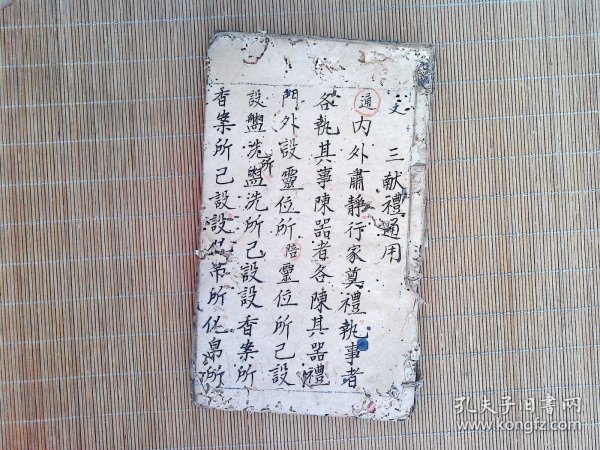 文 三献禮通用
通 内外肅静行家奠禮執事者
各執其事陳器者各陳其器禮
門外設靈位所 陪 靈位所已設
設盥洗所盥洗所已設設香案所
香案所已設設化帛所化帛所
孔夫子旧书网
www.kongfz.com